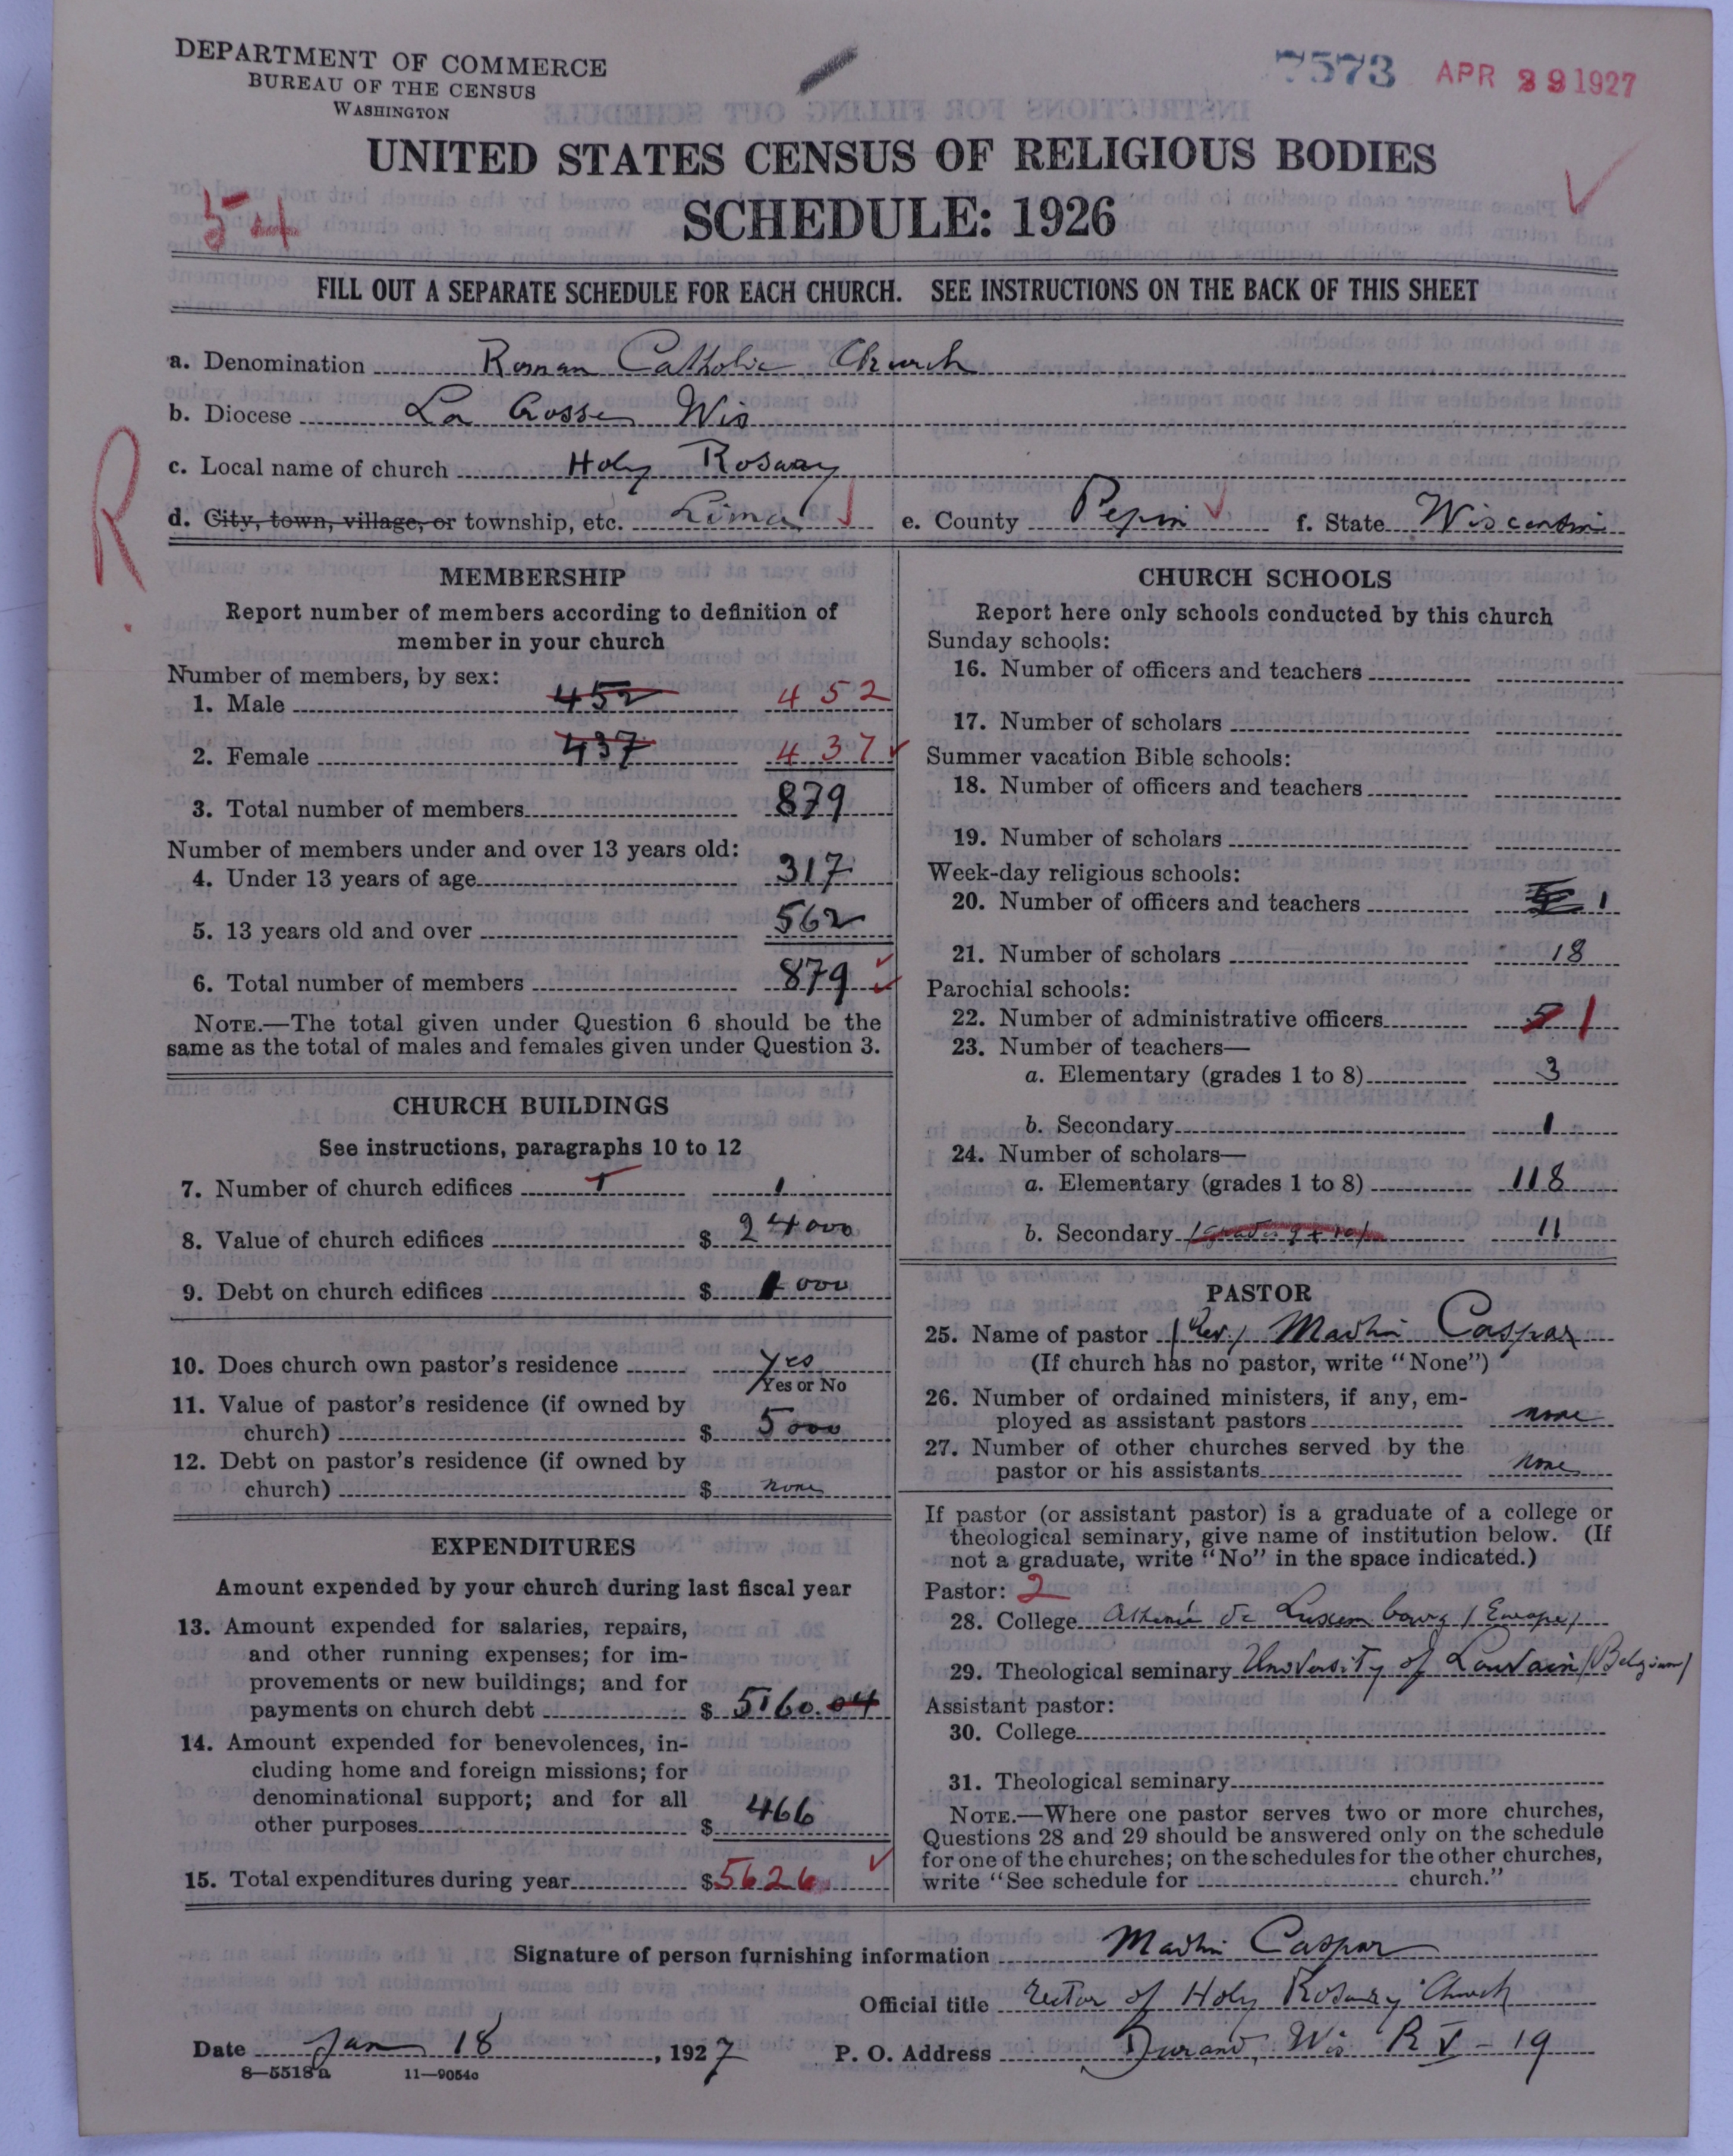 DEPARTMENT OF COMMERCE
BUREAU OF THE CENSUS
WASHINGTON
7573 APR 29 1927
UNITED STATES CENSUS OF RELIGIOUS BODIES
SCHEDULE: 1926
FILL OUT A SEPARATE SCHEDULE FOR EACH CHURCH. SEE INSTRUCTIONS ON THE BACK OF THIS SHEET
a. Denomination Roman Catholic Church
b. Diocese La Crosse Wis
c. Local name of church Holy Rosary
d. City, town, village, or township, etc. Lima e. County Pepin f. State Wisconsin
R
MEMBERSHIP
Report number of members according to definition of
member in your church
Number of members, by sex:
1. Male 452 452
2. Female 437 437
3. Total number of members 879
Number of members under and over 13 years old:
4. Under 13 years of age 317
5. 13 years old and over 562
6. Total number of members 879
NOTE.—The total given under Question 6 should be the
same as the total of males and females given under Question 3.
CHURCH BUILDINGS
See instructions, paragraphs 10 to 12
7. Number of church edifices 1 1
8. Value of church edifices $ 24000
9. Debt on church edifices $ 1000
10. Does church own pastor's residence yes
Yes or No
11. Value of pastor's residence (if owned by
church) $ 5000
12. Debt on pastor's residence (if owned by
church) $ none
EXPENDITURES
Amount expended by your church during last fiscal year
13. Amount expended for salaries, repairs,
and other running expenses; for im-
provements or new buildings; and for
payments on church debt $ 5160.04
14. Amount expended for benevolences, in-
cluding home and foreign missions; for
denominational support; and for all
other purposes $ 466
15. Total expenditures during year $ 5626
CHURCH SCHOOLS
Report here only schools conducted by this church
Sunday schools:
16. Number of officers and teachers
17. Number of scholars
Summer vacation Bible schools:
18. Number of officers and teachers
19. Number of scholars
Week-day religious schools:
20. Number of officers and teachers 1
21. Number of scholars 18
Parochial schools:
22. Number of administrative officers 1
23. Number of teachers—
a. Elementary (grades 1 to 8) 3
b. Secondary 1
24. Number of scholars—
a. Elementary (grades 1 to 8) 118
b. Secondary (grades 9 + 10) 11
PASTOR
25. Name of pastor (Rev.) Martin Caspar
(If church has no pastor, write "None")
26. Number of ordained ministers, if any, em-
ployed as assistant pastors none
27. Number of other churches served by the
pastor or his assistants none
If pastor (or assistant pastor) is a graduate of a college or
theological seminary, give name of institution below. (If
not a graduate, write "No" in the space indicated.)
Pastor: 2
28. College Athené de Luxembourg (Europe)
29. Theological seminary University of Louvain (Belgium)
Assistant pastor:
30. College
31. Theological seminary
NOTE.—Where one pastor serves two or more churches,
Questions 28 and 29 should be answered only on the schedule
for one of the churches; on the schedules for the other churches,
write "See schedule for church."
Signature of person furnishing information Martin Caspar
Official title rector of Holy Rosary Church
Date Jan 18, 1927 P. O. Address Durand, Wis R V - 19
8—5518a 11—9054c